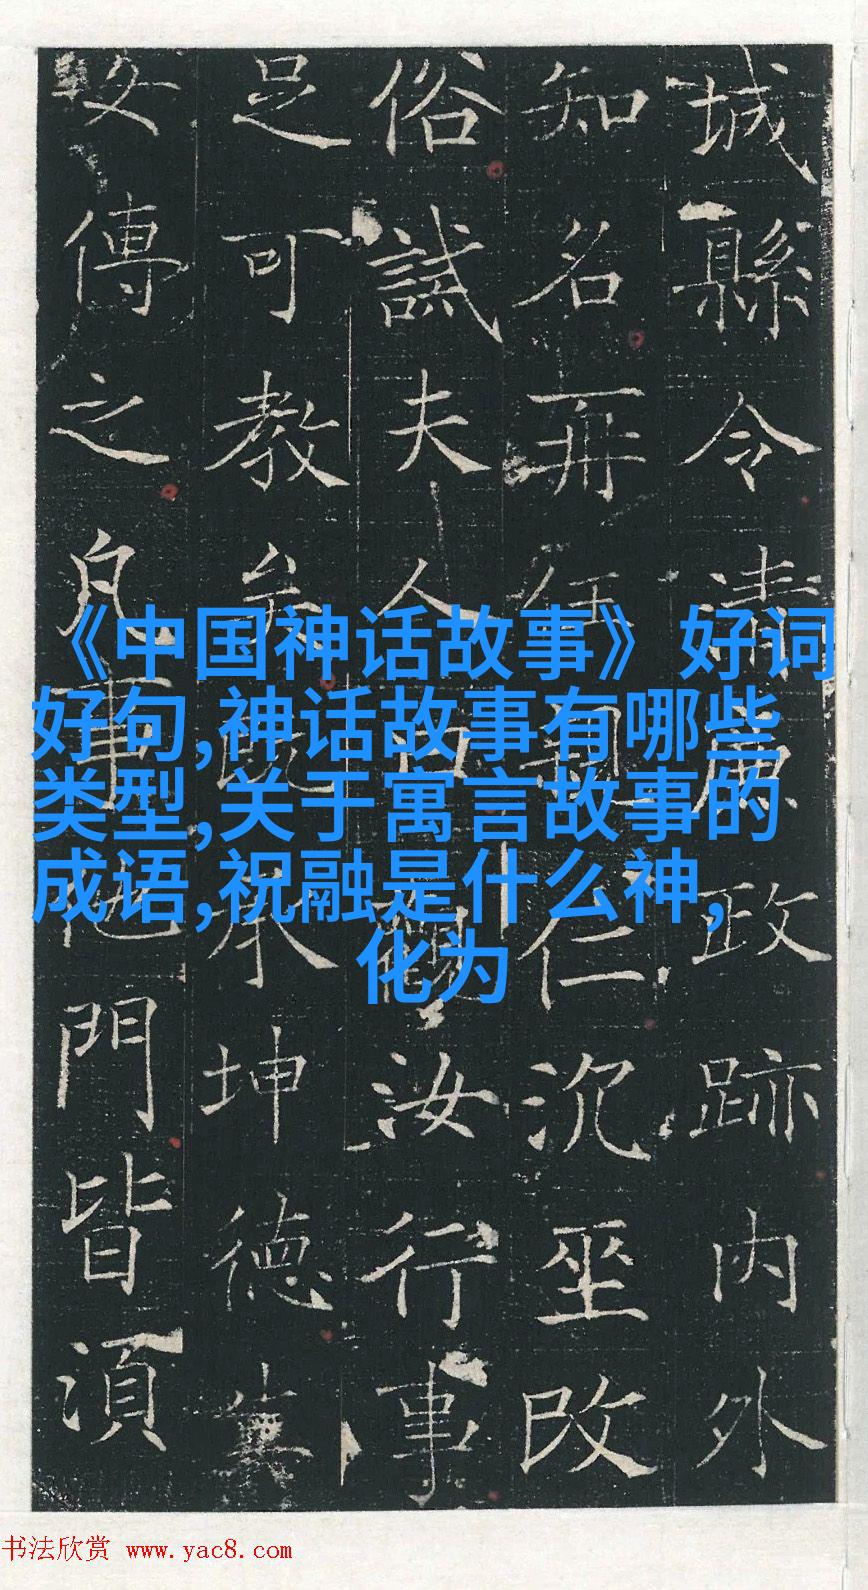 《中国神话故事》好词
好句,神话故事有哪些
类型,关于寓言故事的
成语,祝融是什么神,
化为
城縣令清政跡内外
知名再任仁沉坐改
俗誡夫人汝行事
足可教矣既承坤德
女傳之凡事他門皆須
书法欣赏 www.yac8.com